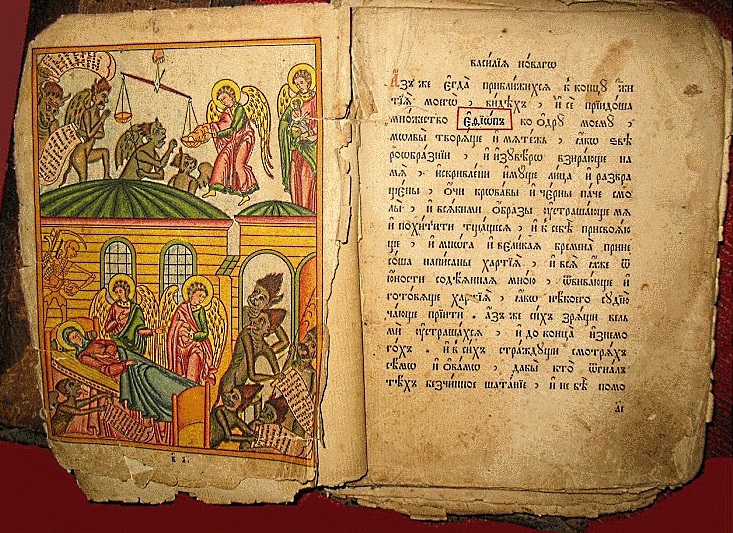 васи́лїѧ но́вагѡ
А҆́зъ же є҆гда̀ прибли́жихсѧ к̾ концꙋ̀ жи
тїѧ̀ моегѡ̀ , ви́дѣхъ , и҆ сѐ прїидо́ша
мно́жество є҆ѳїѡ́пъ ко ѻ҆дрꙋ̀ моемꙋ̀ ,
мѡлвы̀ творѧ́ще и҆ мѧте́жъ , ꙗ҆́кѡ ѕвѣ
роѡбра́знїи , и҆ и҆зꙋвѣ́рѡ взира́юще на
мѧ̀ , и҆скривле́ни и҆мꙋ́ще ли́ца и҆ развра
ще́ны , ѻ҆́чи крѡва́вы и҆ че́рны па́че смо
лы̀ , и҆ всѧ́кими ѻ҆́бразы ᲂу҆страша́юще мѧ
и҆ похи́тити тща́щесѧ , и҆ к̾ себѣ̀ присвоѧ́ю
ще , и҆ мнѡ́га и҆ вели̑каѧ времена̀ прине
со́ша напи̑саны ха́ртїѧ , и҆ всѧ̑ ꙗ҆̀же ѿ
ю҆́ности содѣ̑ѧннаѧ мно́ю , ѿвива́юще и҆
гото́вѧще ха́ртїѧ , ꙗ҆́кѡ нѣ́коего сꙋдїю̀
ча́юще прїитѝ . а҆́зъ же си́хъ зрѧ́щи вель
мѝ ᲂу҆страши́хсѧ , и҆ до конца̀ и҆знемо
го́хъ . и҆ в̾ си́хъ стра́ждꙋщи смотрѧ́хъ
сѣ́мѡ и҆ ѻ҆ва́мѡ , дабы̀ кто̀ ѿгна́лъ
тѣ́хъ безчи́нное шата́нїе , и҆ не бѣ̀ помо